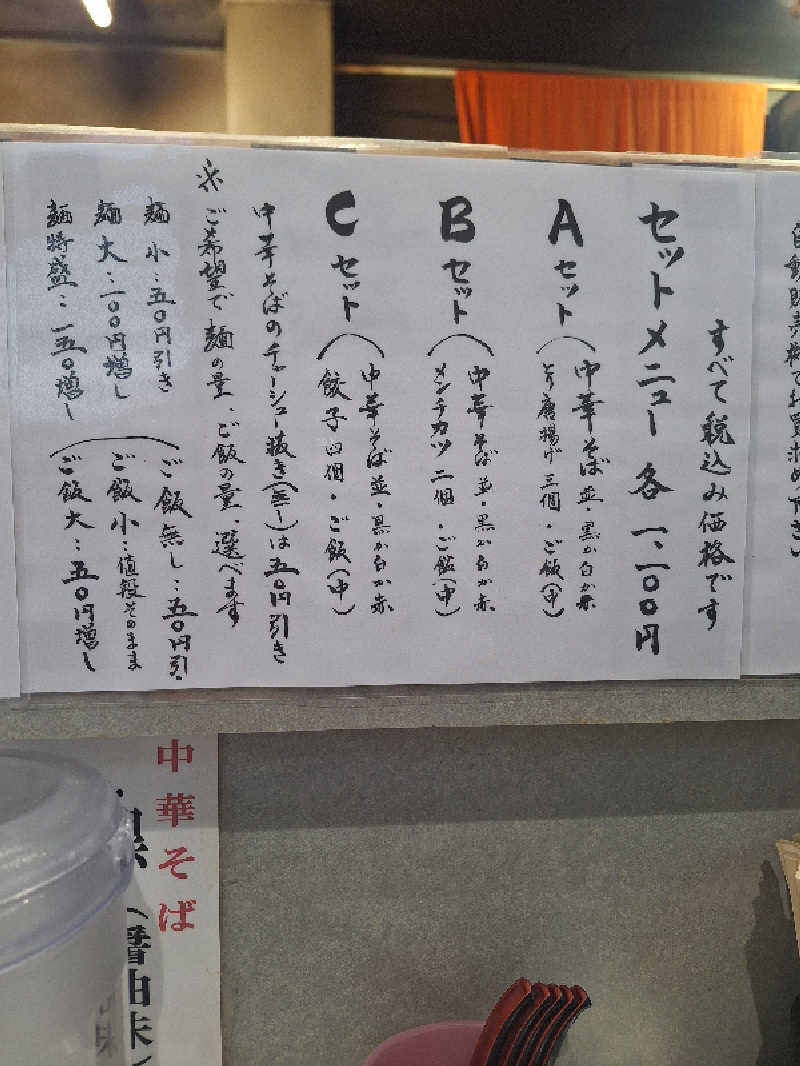 すべて税込み価格です
セットメニュー 各一、一００円
Aセット（中華そば並・黒か白か赤
とり唐揚げ三個・ご飯(中)
Bセット（中華そば並・黒か白か赤
メンチカツ二個・ご飯(中)
Cセット（中華そば並・黒か白か赤
餃子四個・ご飯(中)
中華そばのチャーシュー抜き(無し)は五０円引き
※ご希望で麺の量、ご飯の量、選べます
麺小：五０円引き
麺大：一００円増し
麺特盛：一五０増し
（ご飯無し：五０円引
ご飯小：値段そのまま
ご飯大：五０円増し
中華そば
（醤油味